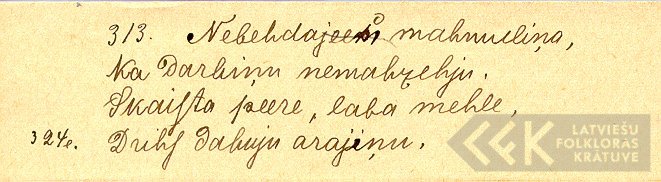 313. Nebehdajees mahmuliņa,
Ka darbiņu nemahzehju.
Skaista peere, laba mehle,
324e. Drihs dabuju arajiņu.
LATVIEŠU
FOLKLORAS
KRĀTUVE